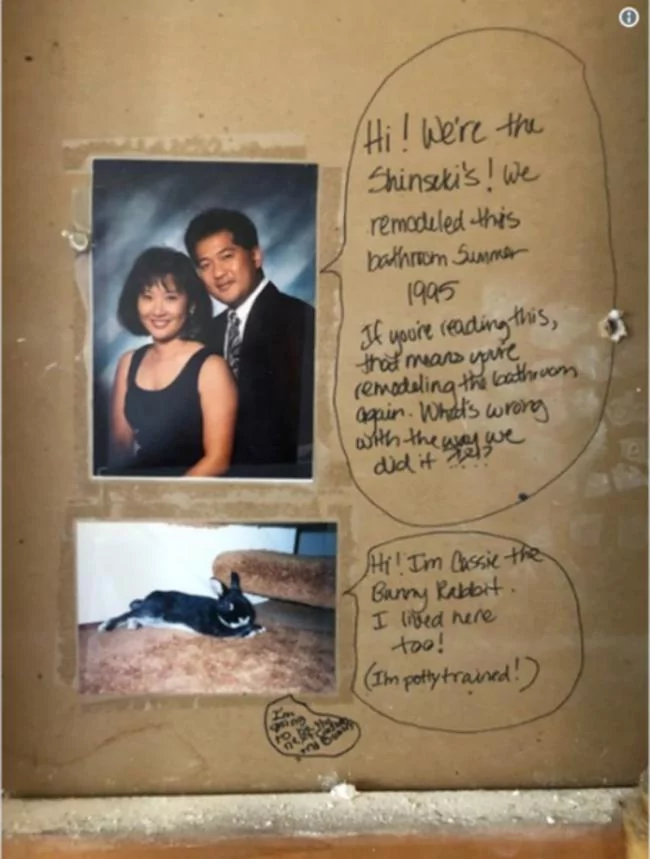 Hi! We're the
Shinseki's! We
remodeled this
bathroom Summer
1995
If you're reading this,
that means you're
remodeling the bathroom
again. What's wrong
with the way we
did it
Hi! I'm Cassie the
Bunny Rabbit.
I lived here
too!
(I'm potty trained!)
I'm
going
to